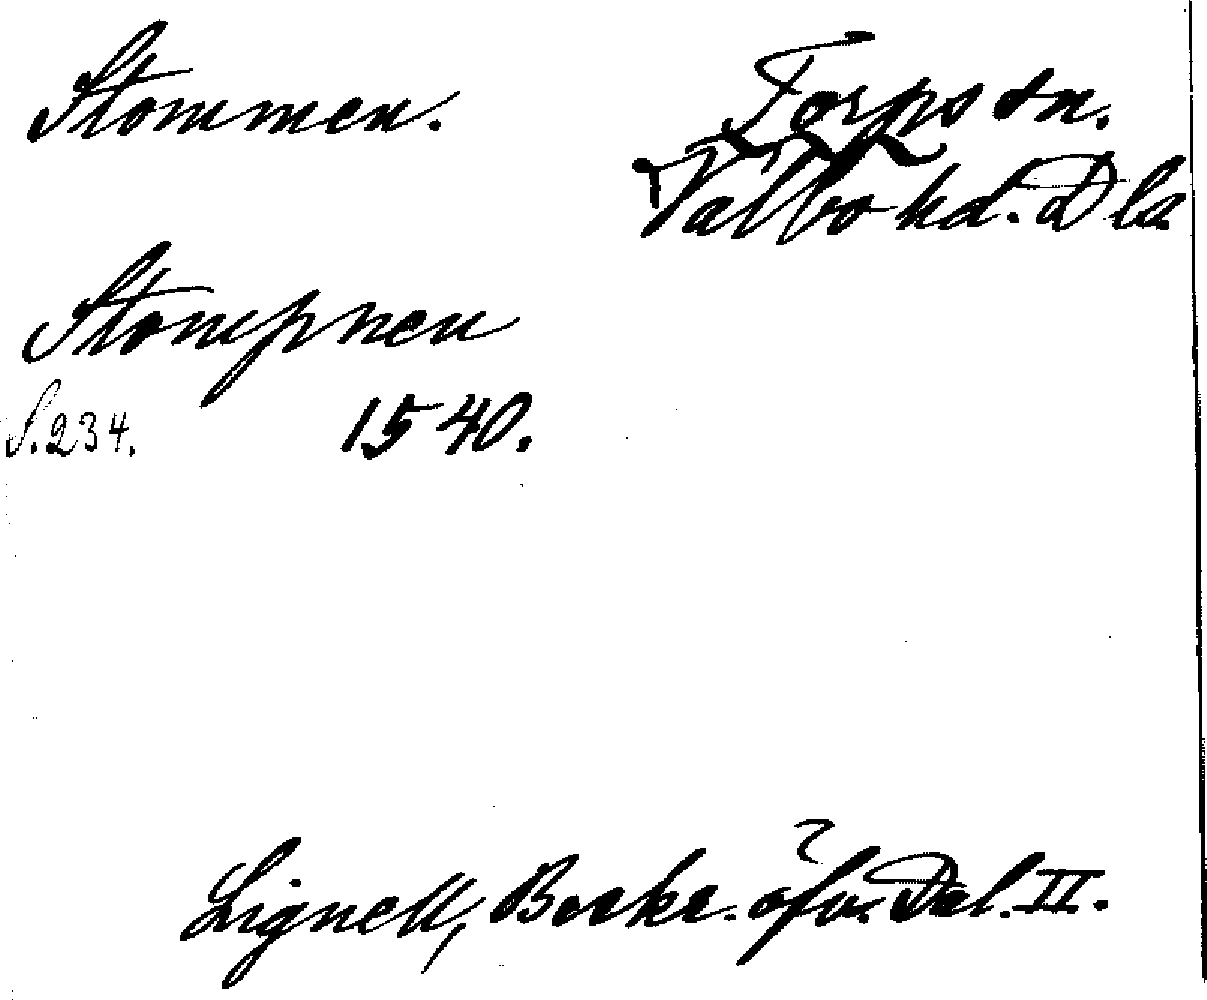 Stommen.
Torps sn.
Valbo hd. Dla
Stompnen
S. 234. 1540.
Lignell, Beskr. öfv. Dal. II.